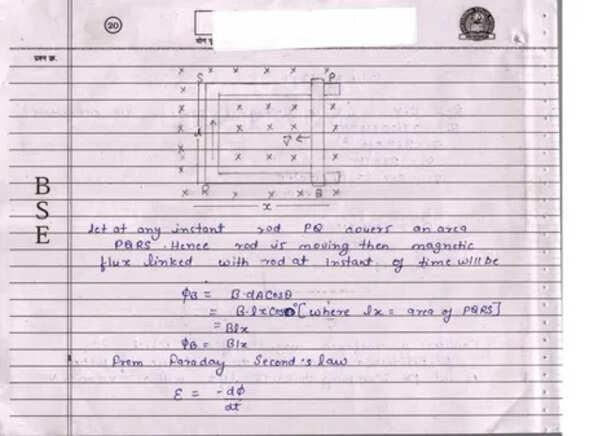 20
प्रश्न क्र.
x x x x x x
S P
x x x x x
x x x x x
l
x x x x x
v ←
x x x x x
x
x R x x x Q x
x
BSE
let at any instant rod PQ covers an area
PQRS. Hence rod is moving then magnetic
flux linked with rod at instant of time will be
ϕB = B·dA Cosθ
= B·lx Cos0° [where lx = area of PQRS]
= Blx
ϕB = Blx
From Faraday Second's law
ε = -dϕ
dt